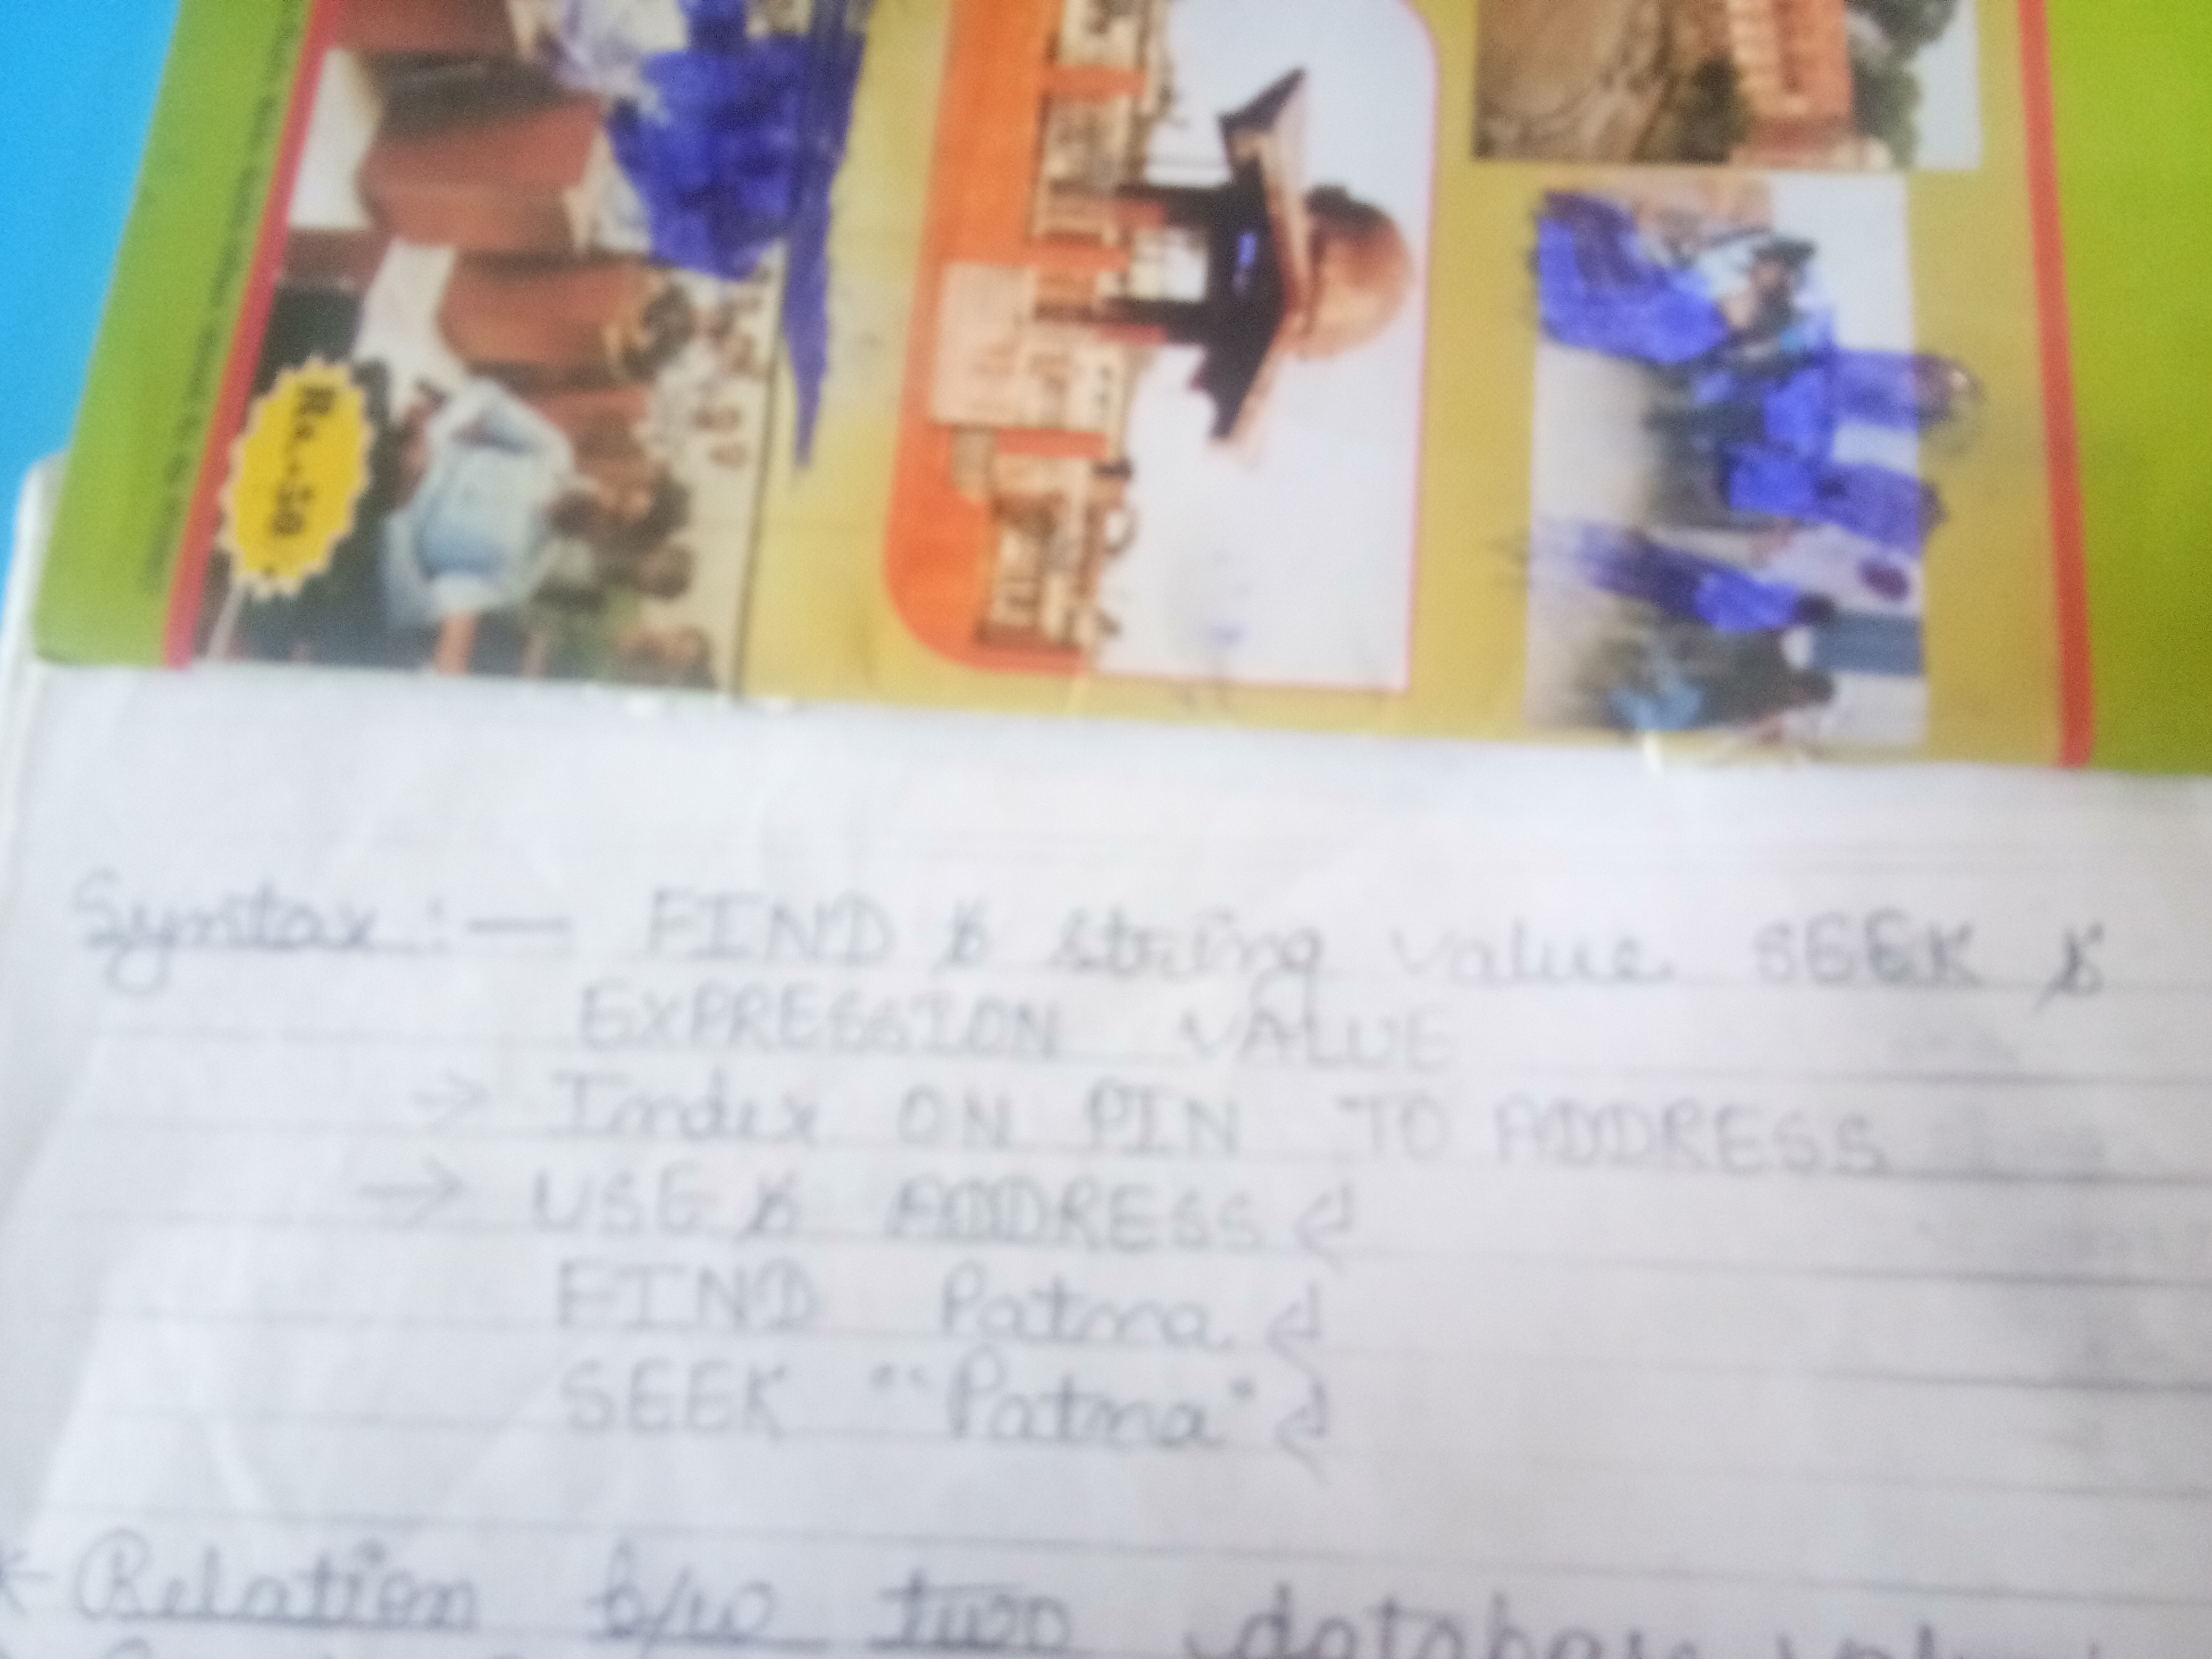 Rs.-50
Syntax :— FIND string value SEEK
EXPRESSION VALUE
→ Index ON PIN TO ADDRESS
→ USE ADDRESS
FIND Patna
SEEK "Patna"
Relation b/w two database